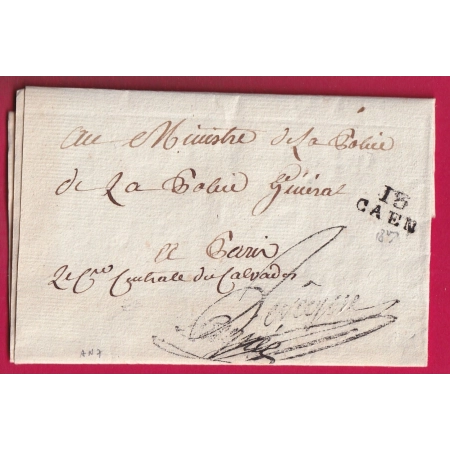 Au Ministre de La Police
de La Police Général
a Paris
13
CAEN
87
Le Cre Centrale du Calvados
AN 7